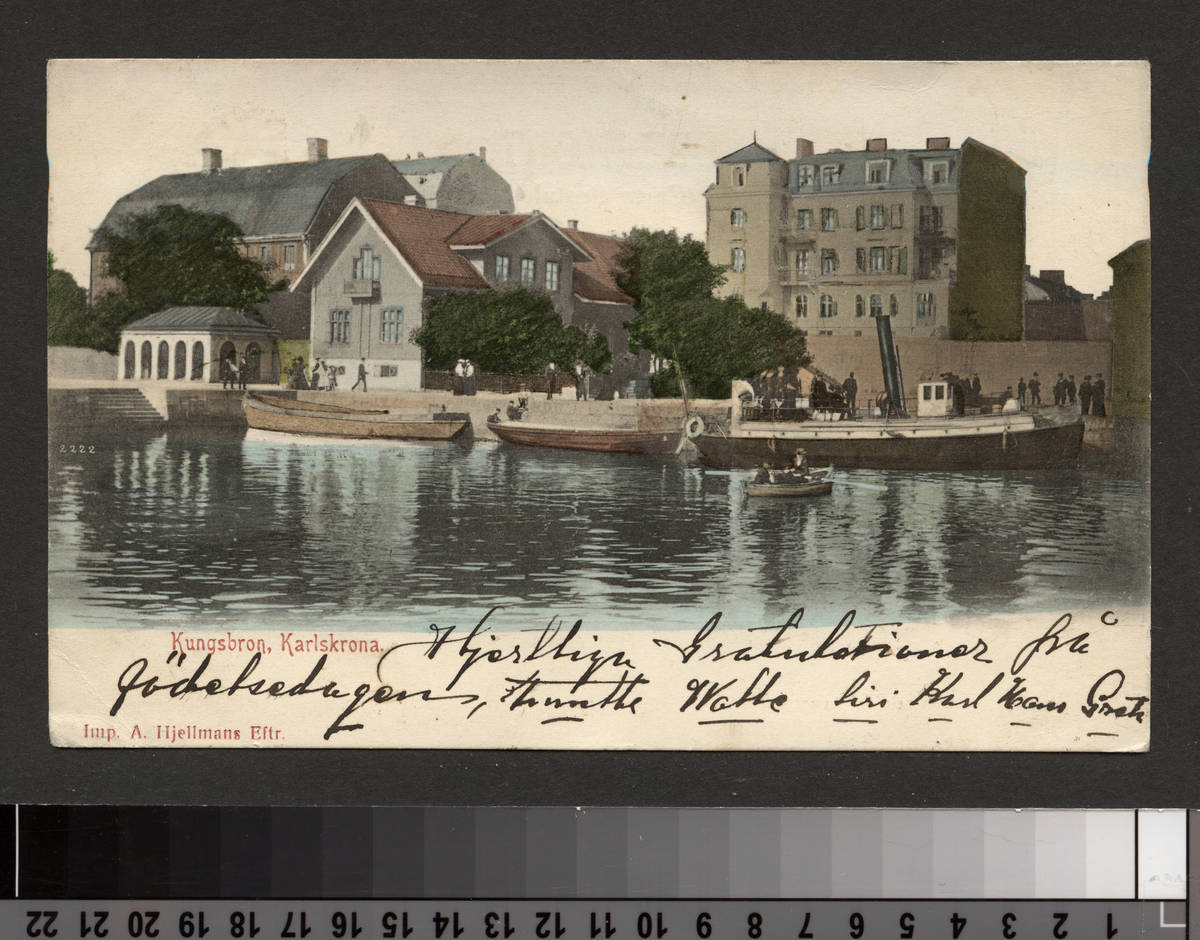 2222
Kungsbron, Karlskrona.
Hjertliga Gratulationer på
födelsedagen, Watte Siri Karl Hans Greta
Imp. A. Hjellmans Eftr.
22 21 20 19 18 17 16 15 14 13 12 11 10 9 8 7 6 5 4 3 2 1